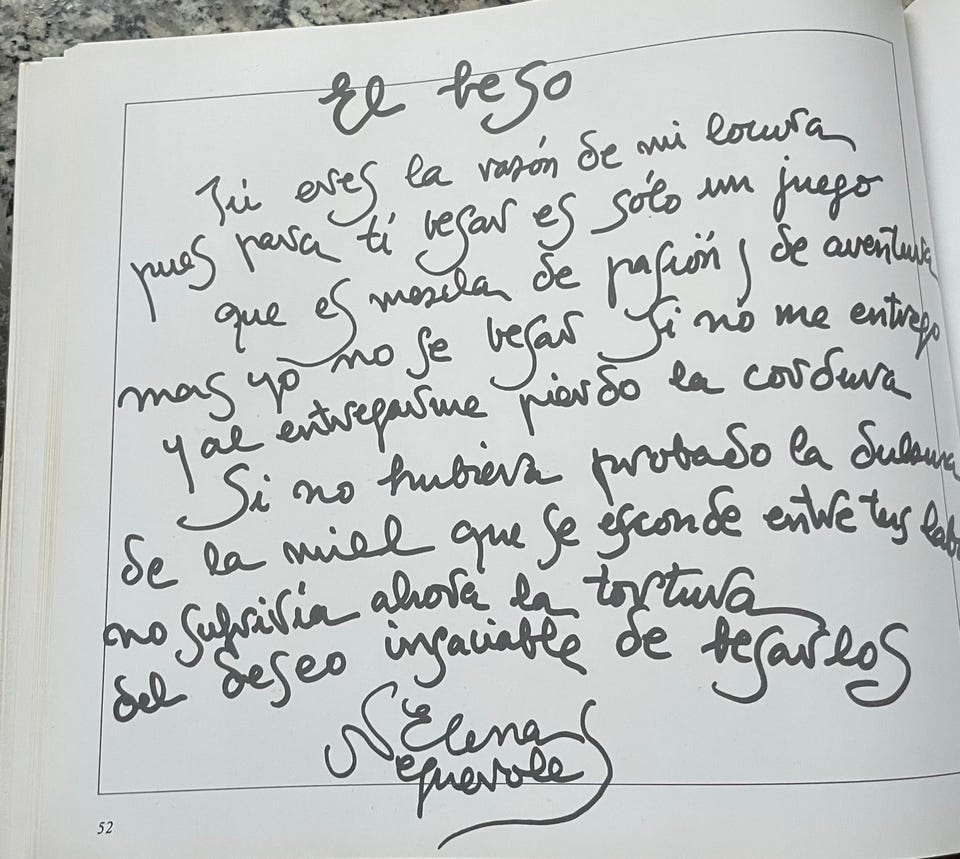 El beso
Tú eres la razón de mi locura
pues para ti besar es sólo un juego
que es mezcla de pasión y de aventura
mas yo no se besar si no me entrego
y al entregarme pierdo la cordura
Si no hubiera probado la dulzura
de la miel que se esconde entre tus labi
no sufriría ahora la tortura
del deseo insaciable de besarlos
Elena
52